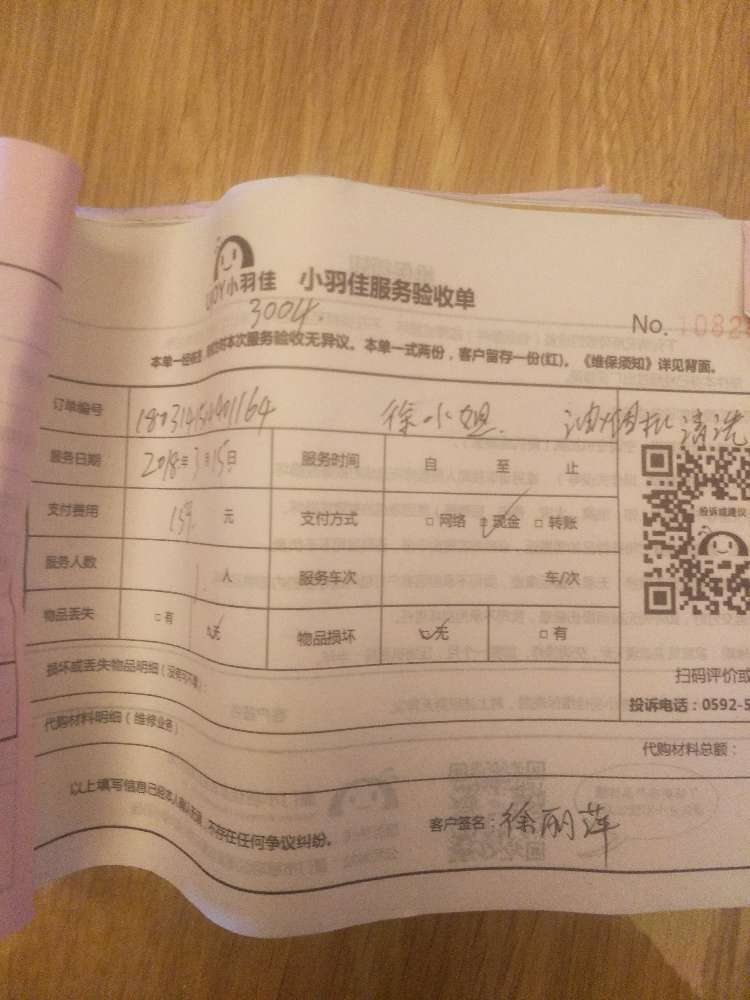 小羽佳 小羽佳服务验收单
3004.
No. 1082
本单一经签 本次服务验收无异议。本单一式两份，客户留存一份(红)。《维保须知》详见背面。
订单编号 徐小姐 油烟机清洗
服务日期 2018年3月15日 服务时间 自 至 止
支付费用 元 支付方式 □网络 □现金 □转账
投诉或建议
服务人数 1 人 服务车次 车/次
物品丢失 □有 □无 物品损坏 □无 □有
损坏或丢失物品明细（没有可不填）：
扫码评价或
投诉电话：0592-5
代购材料明细（维修业务）
代购材料总额：
以上填写信息已经本人确认 ，不存在任何争议纠纷。
客户签名：徐丽萍